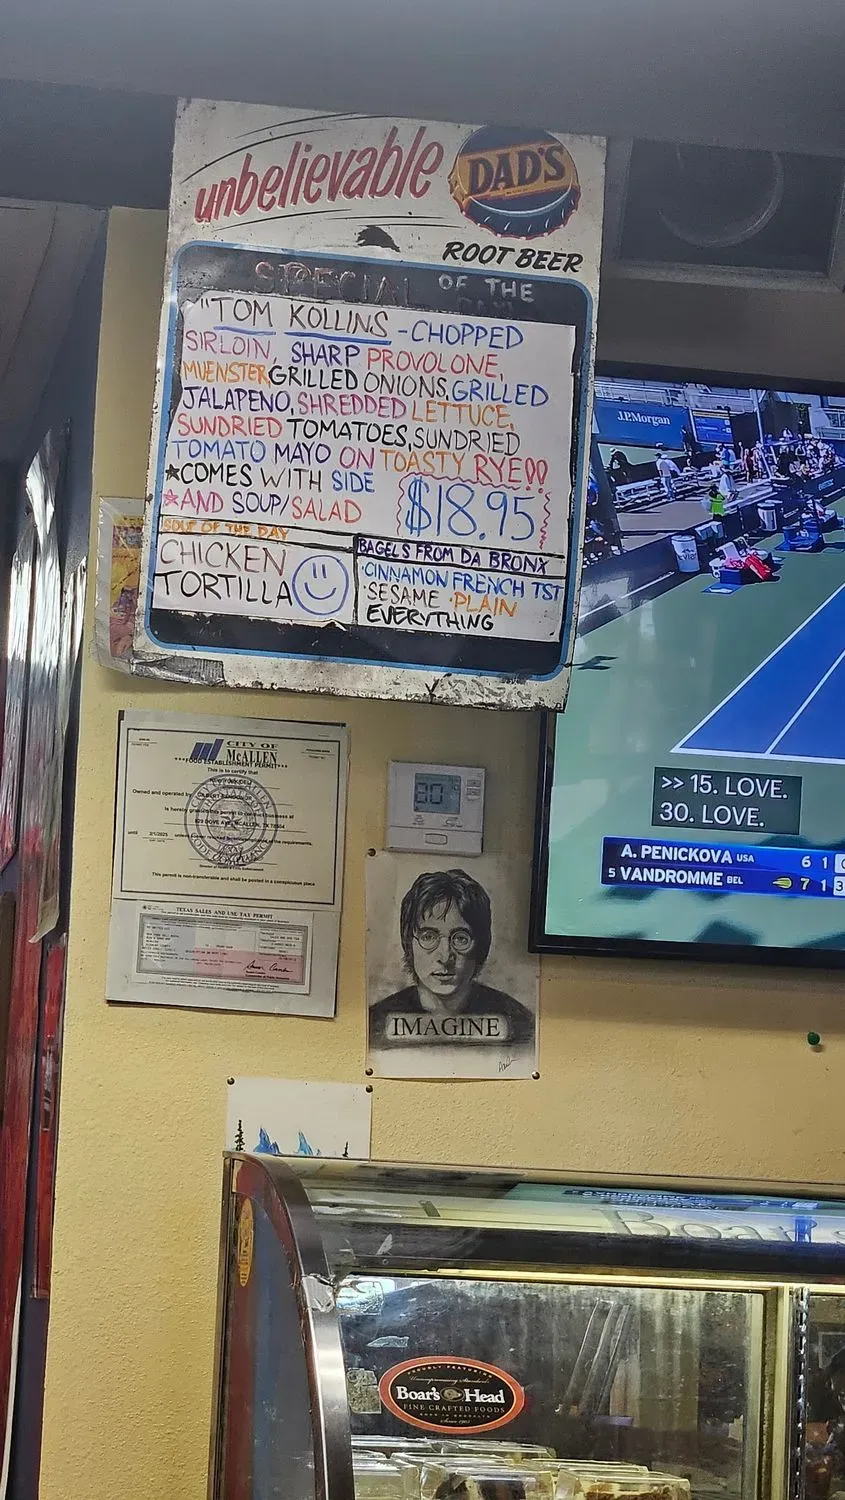 unbelievable
DAD'S
ROOT BEER
SPECIAL OF THE
"TOM KOLLINS - CHOPPED
SIRLOIN, SHARP PROVOLONE,
MUENSTER, GRILLED ONIONS, GRILLED
JALAPENO, SHREDDED LETTUCE,
SUNDRIED TOMATOES, SUNDRIED
TOMATO MAYO ON TOASTY RYE!!
*COMES WITH SIDE
*AND SOUP/SALAD
$18.95
SOUP OF THE DAY
CHICKEN
TORTILLA
BAGELS FROM DA BRONX
·CINNAMON FRENCH TST
·SESAME ·PLAIN
EVERYTHING
J.P.Morgan
evian
>> 15. LOVE.
30. LOVE.
A. PENICKOVA USA 6 1
5 VANDROMME BEL 7 1 3
CITY OF
McALLEN
***FOOD ESTABLISHMENT PERMIT***
This is to certify that
Owned and operated by
is hereby
until 2/1/2025
This permit is non-transferable and shall be posted in a conspicuous place
TEXAS SALES AND USE TAX PERMIT
80
IMAGINE
Boar's
Boar's Head
FINE CRAFTED FOODS
Since 1905